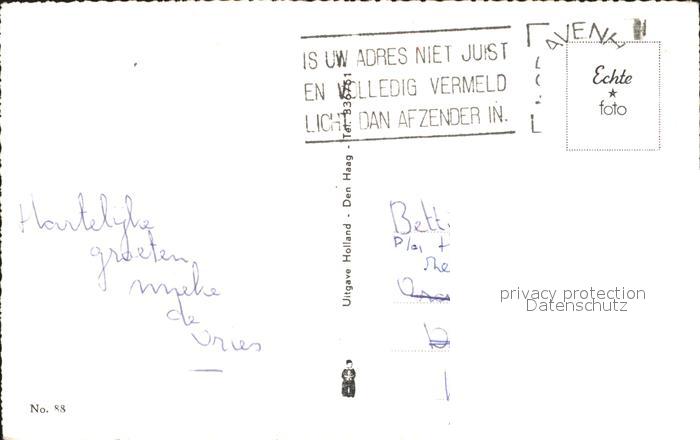 IS UW ADRES NIET JUIST
EN VOLLEDIG VERMELD
LICHT DAN AFZENDER IN.
AVENH
Echte
foto
Hartelijke
groeten
mieke
de
Vries
Uitgave Holland - Den Haag - Tel. 836751
Bett
P/a
privacy protection
Datenschutz
No. 88